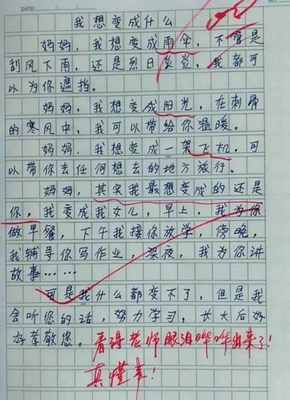 我想变成什么
妈妈，我想变成雨伞，不管是
刮风下雨，还是烈日炎炎，我都可
以为你遮挡。
妈妈，我想变成阳光，在刺骨
的寒风中，我可以带给你温暖。
妈妈，我想变成一架飞机，可
以带你去任何想去的地方旅行。
妈妈，其实我最想变成的还是
你，你变成我女儿，早上，我为你
做早餐，下午我接你放学，傍晚，
我辅导你写作业，深夜，我为你讲
故事……
可是我什么都变不了，但是我
会听您的话，努力学习，长大后好
好孝敬您。
看得老师眼泪哗哗出来了！
真懂事！